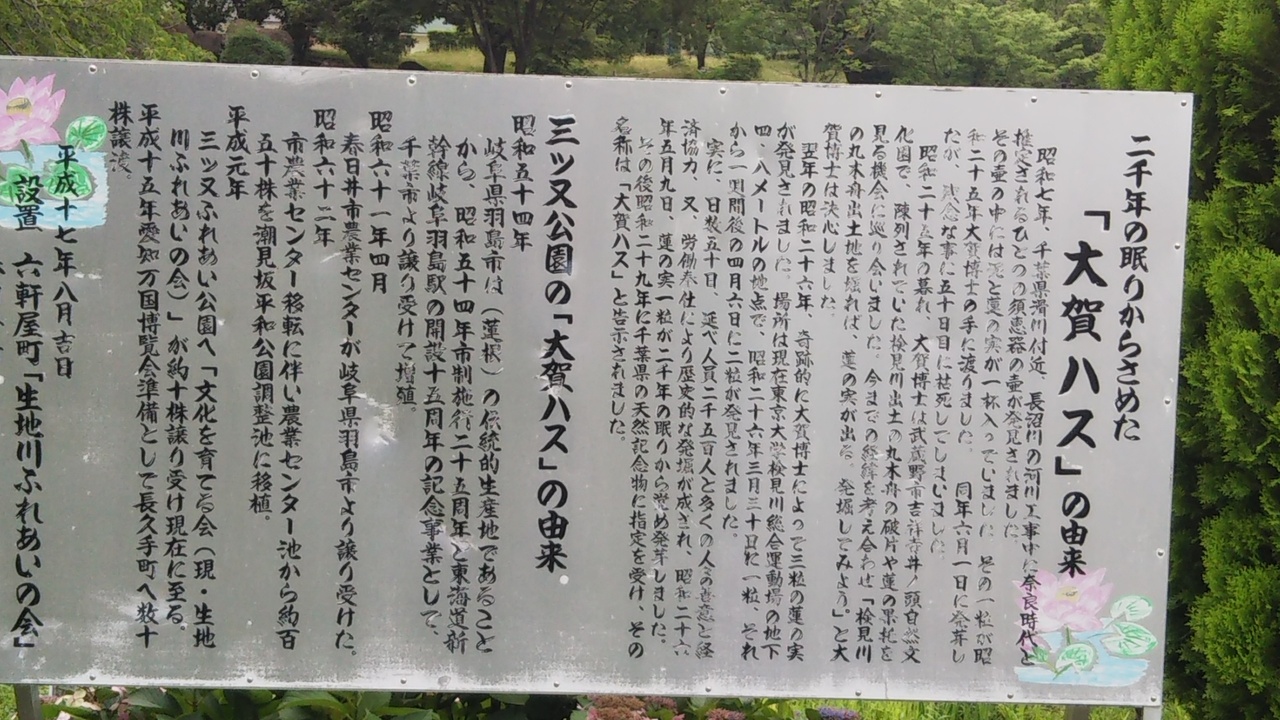 二千年の眠りからさめた
「大賀ハス」の由来
昭和七年、千葉県滑川付近、長沼川の河川工事中に奈良時代と
推定されるひとつの須恵器の壷が発見されました。
その壷の中には死と蓮の実が一杯入っていました。その一粒が昭
和二十五年大賀博士の手に渡りました。同年六月一日に発芽し
たが、残念な事に五十日目に枯死してしまいました。
昭和二十五年の暮れ、大賀博士は武蔵野市吉祥寺井ノ頭自然文
化園で、陳列されていた検見川出土の丸木舟の破片や蓮の果托を
見る機会に巡り会いました。今までの経緯を考え合わせ「検見川
の丸木舟出土地を掘れば、蓮の実が出る。発掘してみよう。」と大
賀博士は決心しました。
翌年の昭和二十六年、奇跡的に大賀博士によって三粒の蓮の実
が発見されました。場所は現在東京大学検見川総合運動場の地下
四、八メートルの地点で、昭和二十六年三月三十日に一粒、それ
から一週間後の四月六日に二粒が発見されました。
実に、日数五十日、延べ人員二千五百人と多くの人々の善意と経
済協力、又、労働奉仕により歴史的な発掘が成され、昭和二十六
年五月九日、蓮の実一粒が二千年の眠りから覚め発芽しました。
その後昭和二十九年に千葉県の天然記念物に指定を受け、その
名称は「大賀ハス」と告示されました。
三ッ又公園の「大賀ハス」の由来
昭和五十四年
岐阜県羽島市は（蓮根）の伝統的生産地であること
から、昭和五十四年市制施行二十五周年と東海道新
幹線岐阜羽島駅の開設十五周年の記念事業として、
千葉市より譲り受けて増殖。
昭和六十一年四月
春日井市農業センターが岐阜県羽島市より譲り受けた。
昭和六十二年
市農業センター移転に伴い農業センター池から約百
五十株を潮見坂平和公園調整池に移植。
平成元年
三ッ又ふれあい公園へ「文化を育てる会（現・生地
川ふれあいの会）」が約十株譲り受け現在に至る。
平成十五年愛知万国博覧会準備として長久手町へ数十
株譲渡。
平成十七年八月吉日
設置 六軒屋町「生地川ふれあいの会」